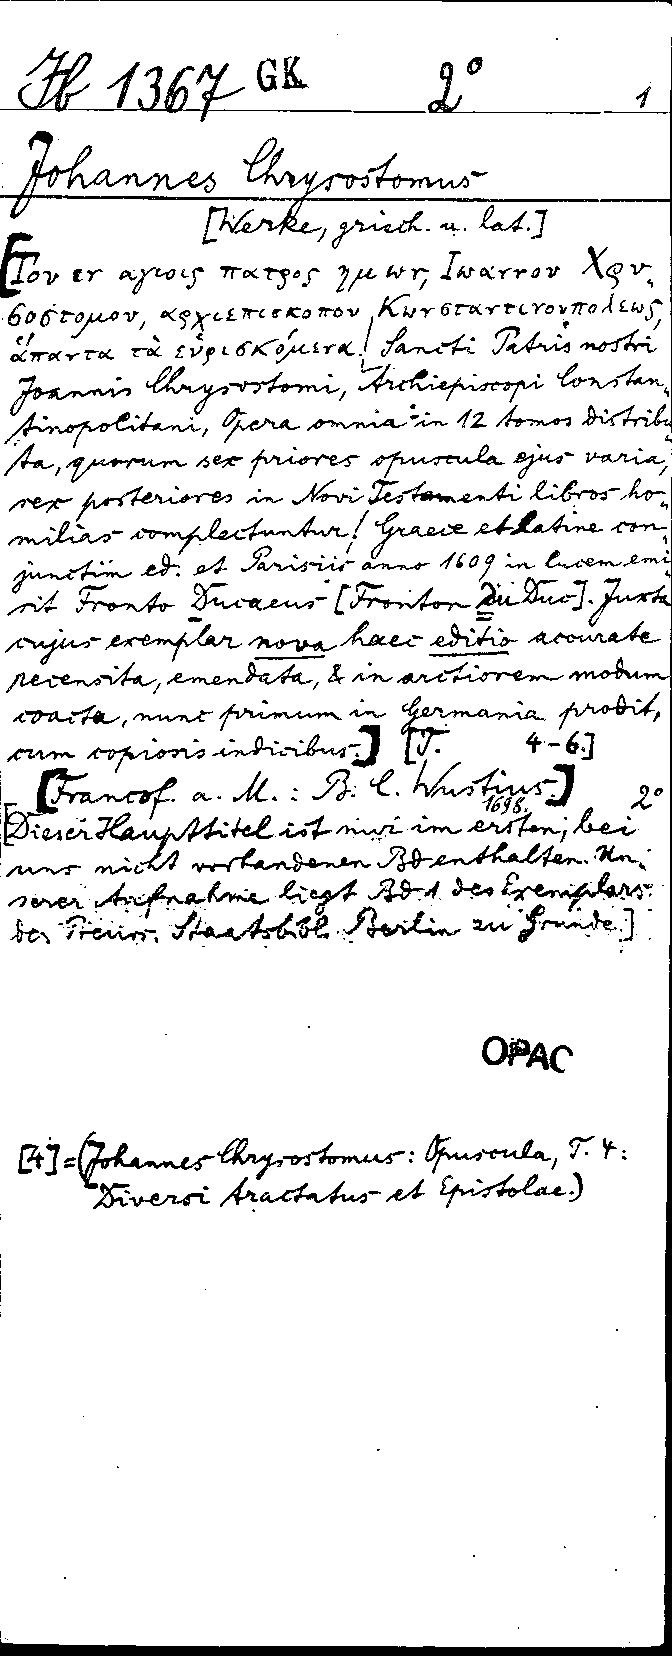 Hb 1367 GK 2° 1
Johannes Chrysostomus
[Werke, griech. u. lat.]
[Του εν αγιοις πατρος ημων, Ιωαννου Χρυ-
σοστομου, αρχιεπισκοπου Κωνσταντινουπολεως,
ἅπαντα τὰ εὑρισκόμενα! Sancti Patris nostri
Joannis Chrysostomi, Archiepiscopi Constan-
tinopolitani, Opera omnia in 12 tomos distribu-
ta, quorum sex priores opuscula ejus varia,
sex posteriores in Novi Testamenti libros ho-
milias complectuntur! Graece et Latine con-
junctim ed. et Parisiis anno 1609 in lucem emi-
sit Fronto Ducaeus [Fronton Du Duc]. Juxta
cujus exemplar nova haec editio accurate
recensita, emendata, & in arctiorem modum
coacta, nunc primum in Germania prodit,
cum copiosis indicibus.] [T. 4-6.]
[Francof. a. M.: B. C. Wustius.] 2°
1698.
[Dieser Haupttitel ist nur im ersten, bei
uns nicht vorhandenen Bd enthalten. Un-
serer Aufnahme liegt Bd 1 des Exemplars
der Preuss. Staatsbibl. Berlin zu Grunde.]
OPAC
[4] = (Johannes Chrysostomus: Opuscula, T. 4:
Diversi tractatus et Epistolae.)